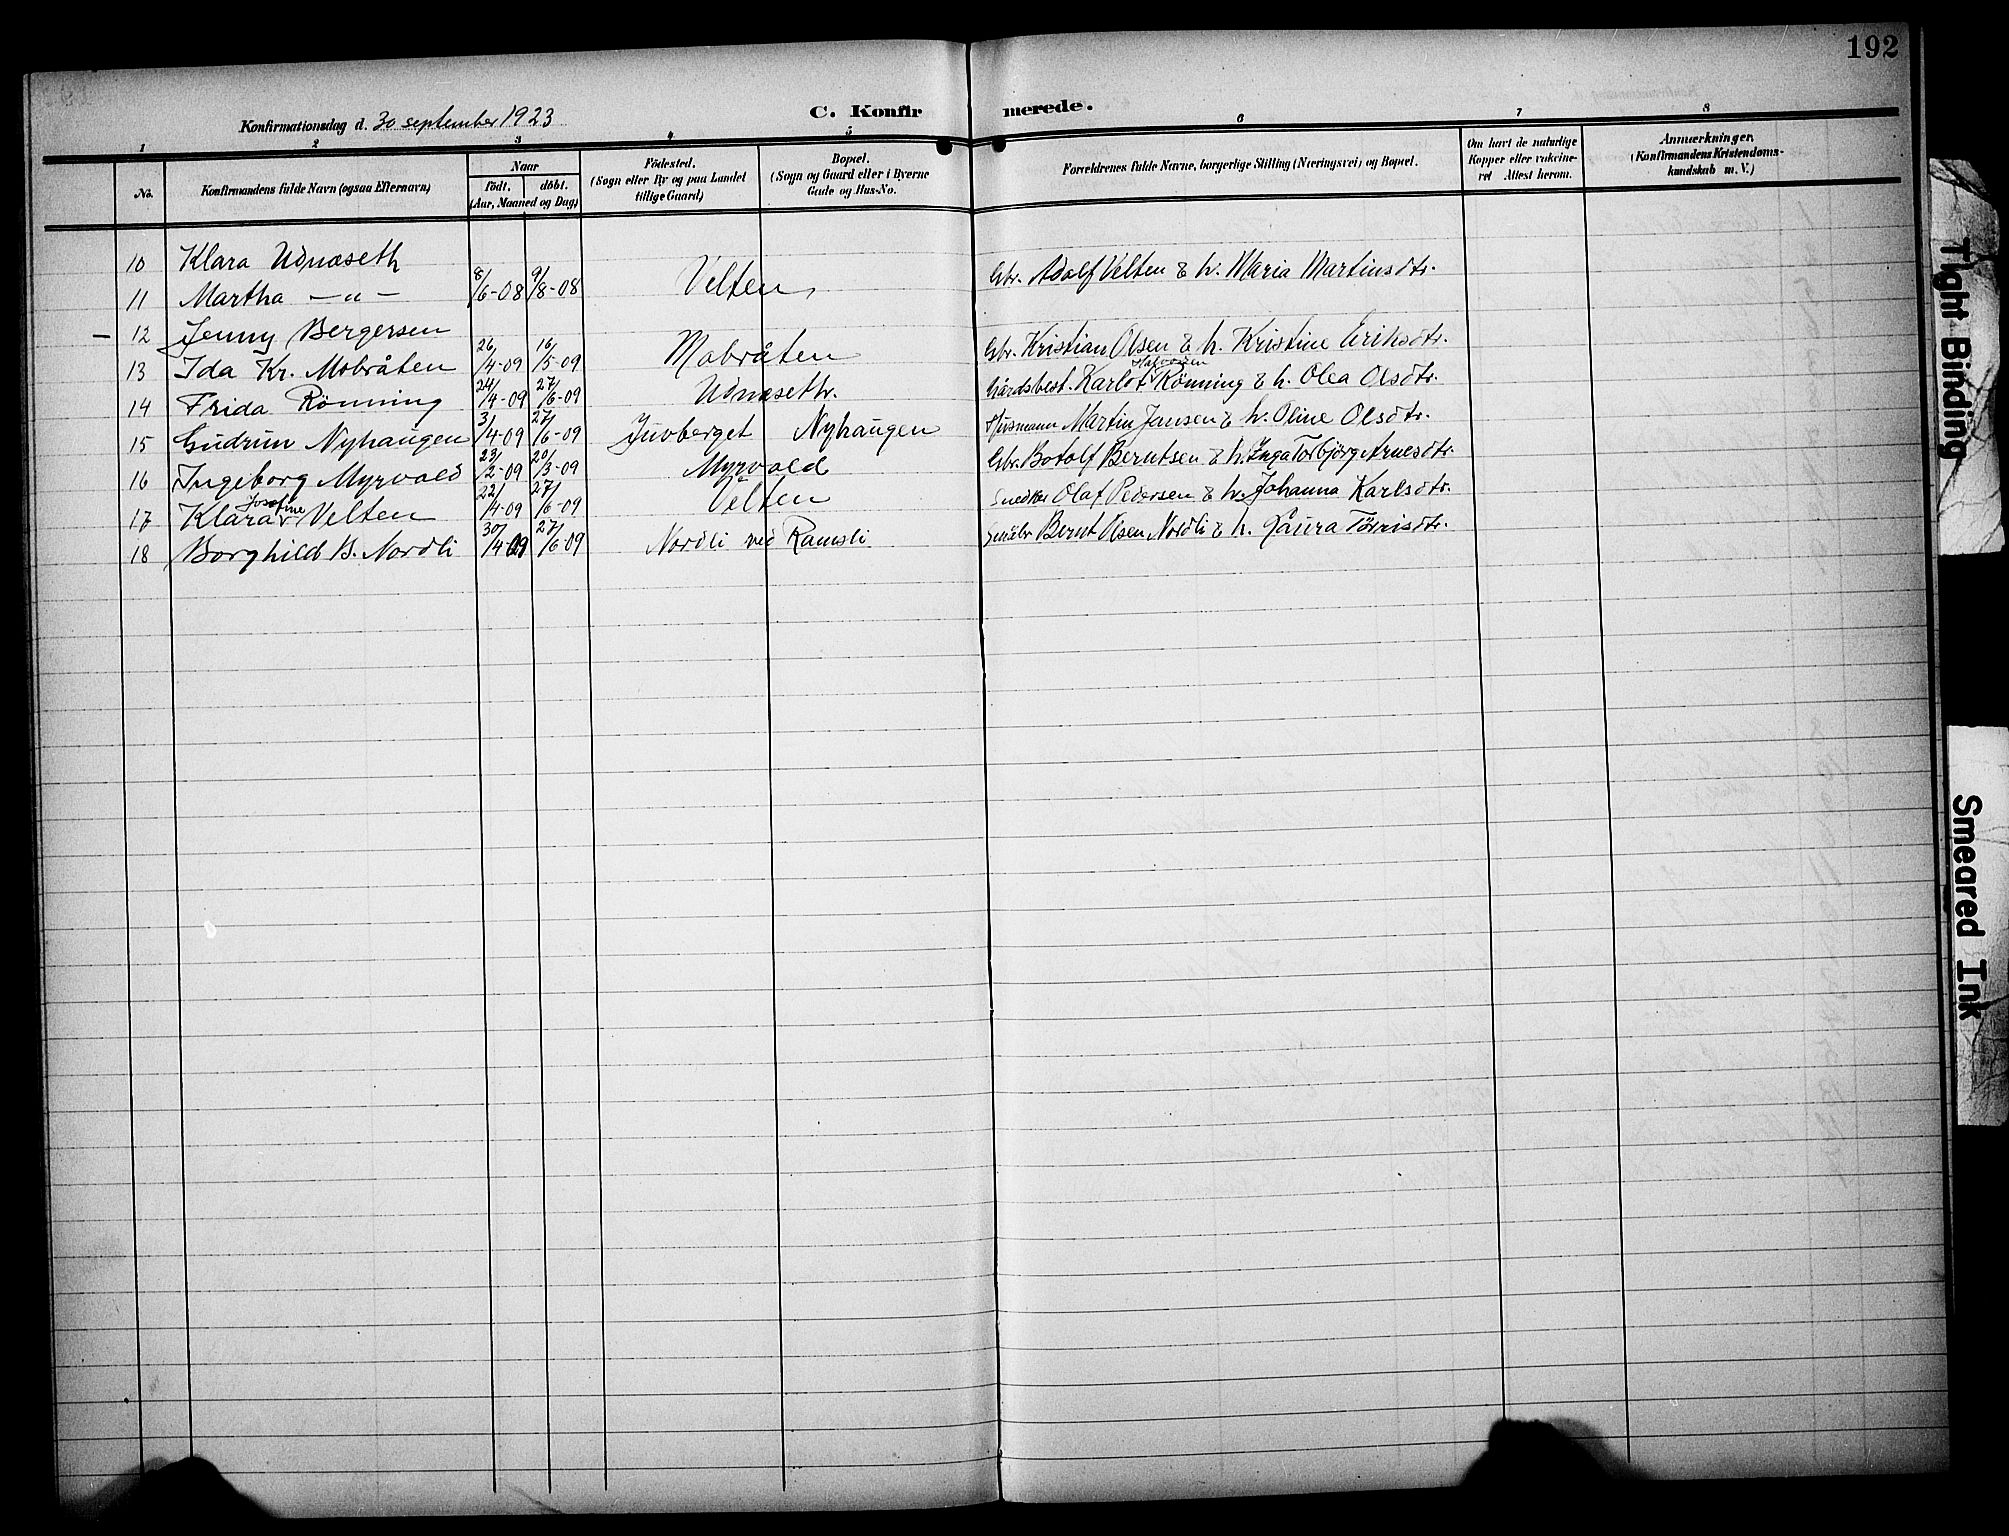 192
Konfirmationsdag d. 30 september 1923
C. Konfirmerede.
1 2 3 4 5 6 7 8
No.
Konfirmandens fulde Navn (ogsaa Efternavn)
Naar
født, døbt.
(Aar, Maaned og Dag)
Fødested.
(Sogn eller By og paa Landet
tillige Gaard)
Bopæl.
(Sogn og Gaard eller i Byerne
Gade og Hus-No.
Forældrenes fulde Navne, borgerlige Stilling (Næringsvei) og Bopæl.
Om havt de naturlige
Kopper eller vakcine-
ret Attest herom.
Anmærkninger.
(Konfirmandens Kristendoms-
kundskab m. V.)
10 Klara Udnæseth
11 Martha —„— 8/6-08 9/8-08 Velten, Gbr. Adolf Velten & h. Maria Martinsdtr.
— 12 Jenny Bergersen
13 Ida Kr. Mobråten 26/4-09 16/5-09 Mobråten Gbr. Kristian Olsen & h. Kristine Eriksdtr.
14 Frida Rönning 24/4-09 27/6-09 Udnæseth. Gårdsbest. Karlot Halvorsen Rönning & h. Olea Olsdtr.
15 Gudrun Nyhaugen 3/4-09 27/6-09 Juvberget Nyhaugen Husmann Martin Jansen & h. Oline Olsdtr.
16 Ingeborg Myrvold 23/2-09 20/3-09 Myrvold Gbr. Botolf Berntsen & h. Inga Torbjörg Arnesdtr.
17 Klara Josefine Velten 22/4-09 27/6-09 Velten Snedker Olaf Pedersen & h. Johanna Karlsdtr.
18 Borghild B. Nordli 30/4-09 27/6-09 Nordli ved Ramsli Småbr Bernt Olsen Nordli & h. Laura Törrisdtr.
Tight Binding
Smeared Ink